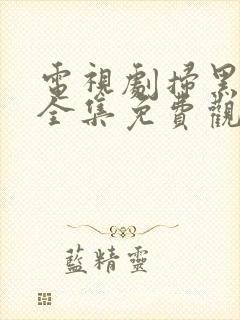 電視劇掃黑
全集免費觀
藍精靈